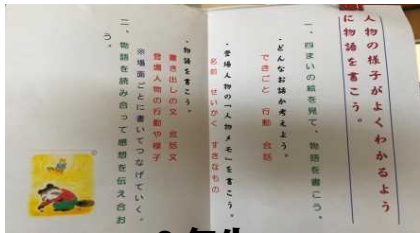 人物の様子がよくわかるよう
に物語を書こう。
一、四まいの絵を見て、物語を書こう。
・どんなお話か考えよう。
できごと 行動 会話
・登場人物の「人物メモ」を書こう。
名前 せいかく すきなもの
・物語を書こう。
書き出しの文 会話文
登場人物の行動や様子
※場面ごとに書いてつなげていく。
二、物語を読み合って感想を伝え合お
う。